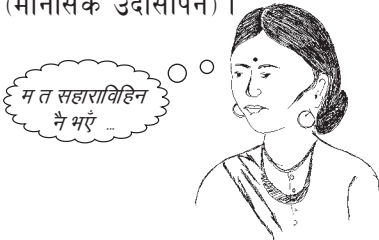 (मानसिक उदासीपन) ।
म त सहाराविहिन
नै भएँ ...